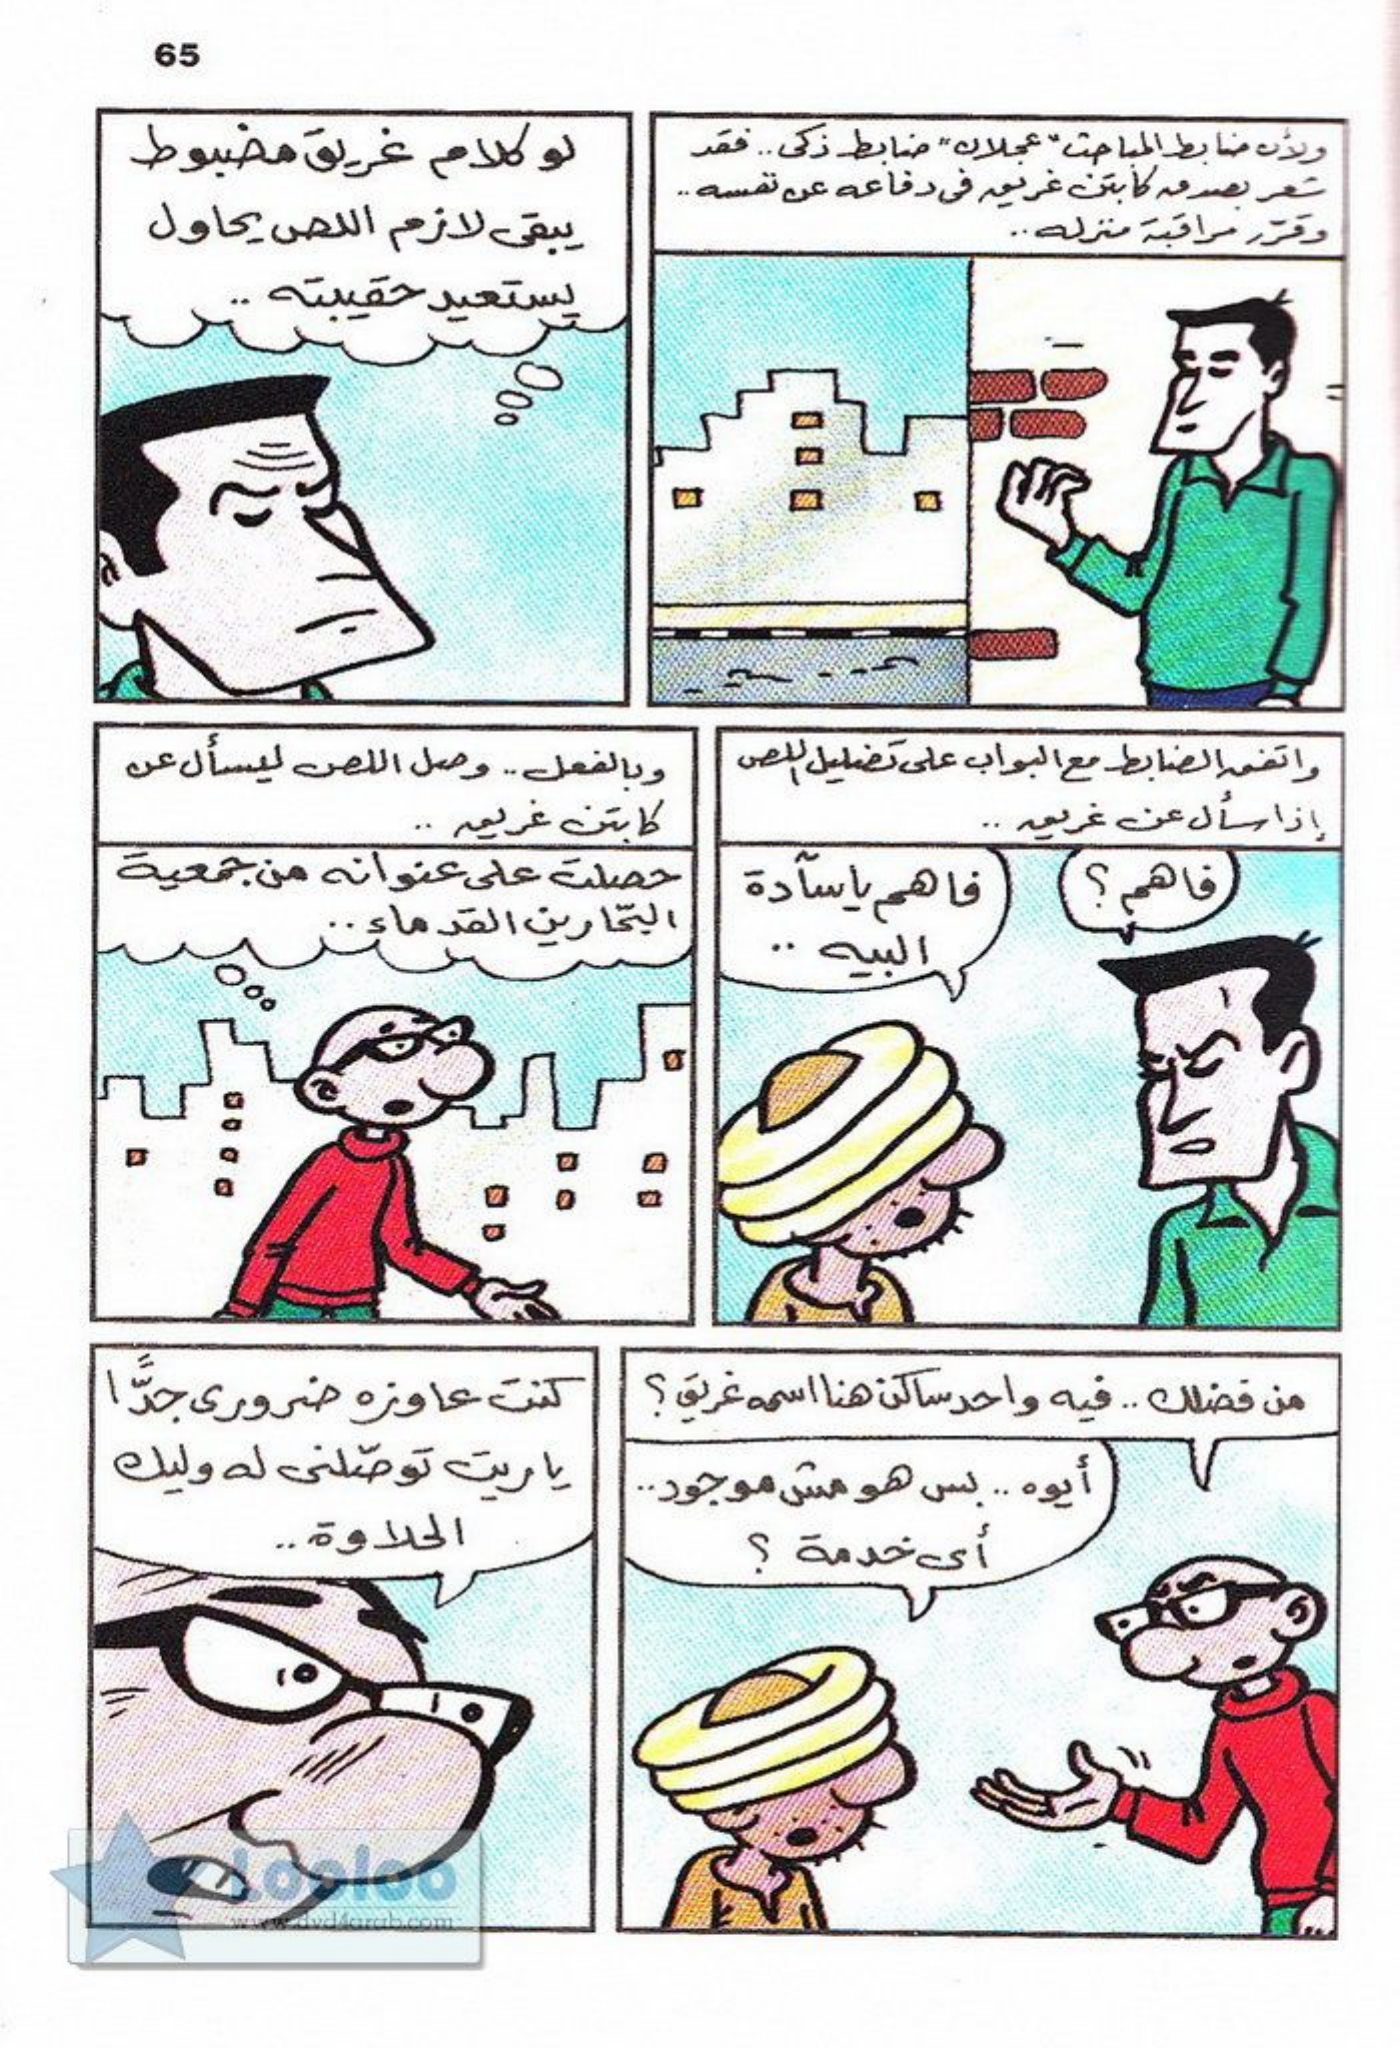 65
ولأن ضابط المباحث "عجلان" ضابط ذكى.. فقد
شعر بصدق كابتن غريق فى دفاعه عن نفسه..
وقرّر مراقبة منزله..
لو كلام غريق مضبوط
يبقى لازم اللص يحاول
يستعيد حقيبته ..
واتفق الضابط مع البواب على تضليل اللص
إذا سأل عن غريق ..
فاهم؟
فاهم يا سآدة
البيه ..
وبالفعل.. وصل اللص ليسأل عن
كابتن غريق ..
حصلت على عنوانه من جمعية
البحّارين القدماء..
من فضلك .. فيه واحد ساكن هنا اسمه غريق؟
أيوه .. بس هو مش موجود..
أى خدمة ؟
كنت عاوزه ضرورى جدًّا
ياريت توصّلنى له وليك
الحلاوة..
Looloo
www.dvd4arab.com